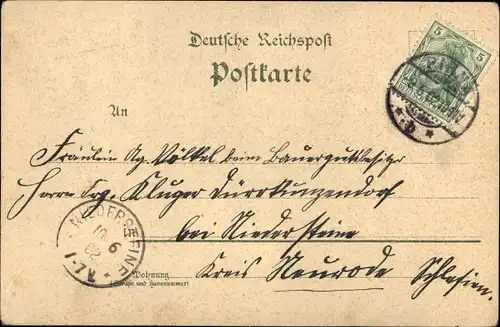 Deutsche Reichspost
Postkarte
5 5
An
Fräulein Ag. Völkel beim Bauergutsbesitzer
Herrn Aug. Kluger Dürrkunzendorf
bei Niedersteine
Kreis Neurode Schlesien.
NIEDERSTEINE
10 6
02
1-7 N
Wohnung
(Straße und Hausnummer)